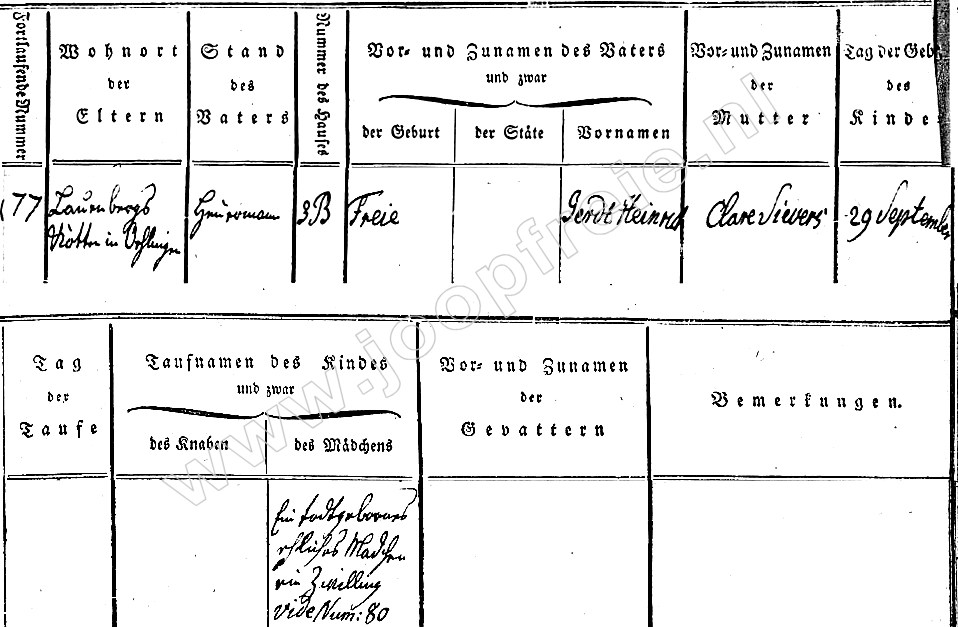 Fortlaufende Nummer
Wohnort
der
Eltern
Stand
des
Vaters
Nummer des Hauses
Vor- und Zunamen des Vaters
und zwar
der Geburt
der Stäte
Vornamen
Vor- und Zunamen
der
Mutter
Tag der Geb
des
Kinde
77
Laurenbergs
Kötten in
Heuermann
3.B
Freie
Gerdt Heinrich
Clare Sievers
29 September
Tag
der
Taufe
Taufnamen des Kindes
und zwar
des Knaben
des Mädchens
Vor- und Zunamen
der
Gevattern
Bemerkungen.
Ein todtgebornes
ehliches Mädchen
ein Zwilling
vide Num: 80
www.joopfreie.nl